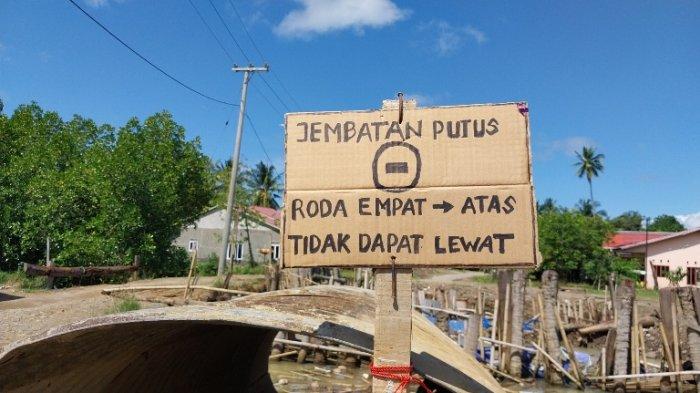 JEMBATAN PUTUS
RODA EMPAT → ATAS
TIDAK DAPAT LEWAT